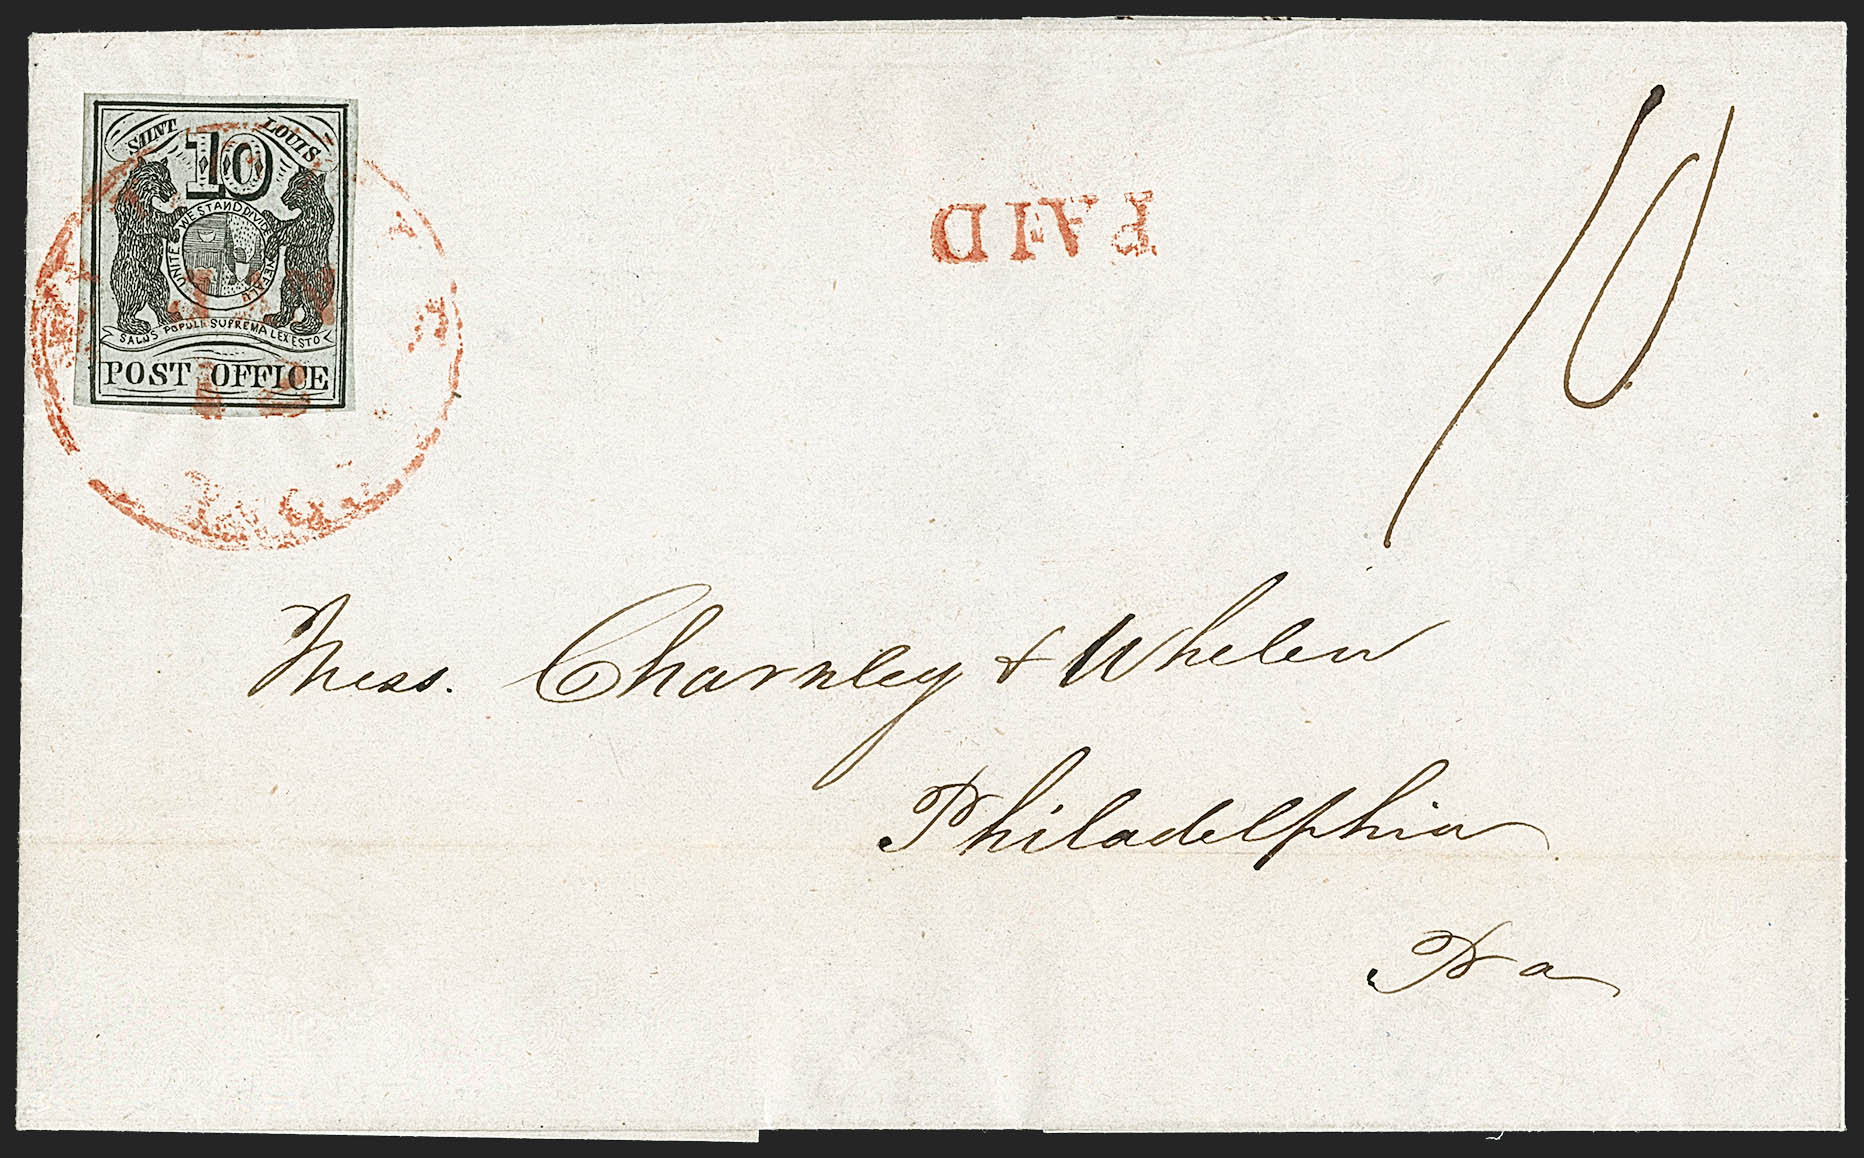 SAINT LOUIS
10
UNITED WE STAND DIVIDED WE FALL
SALUS POPULI SUPREMA LEX ESTO
POST OFFICE
PAID
10
Mess. Charnley & Whelen
Philadelphia
Pa